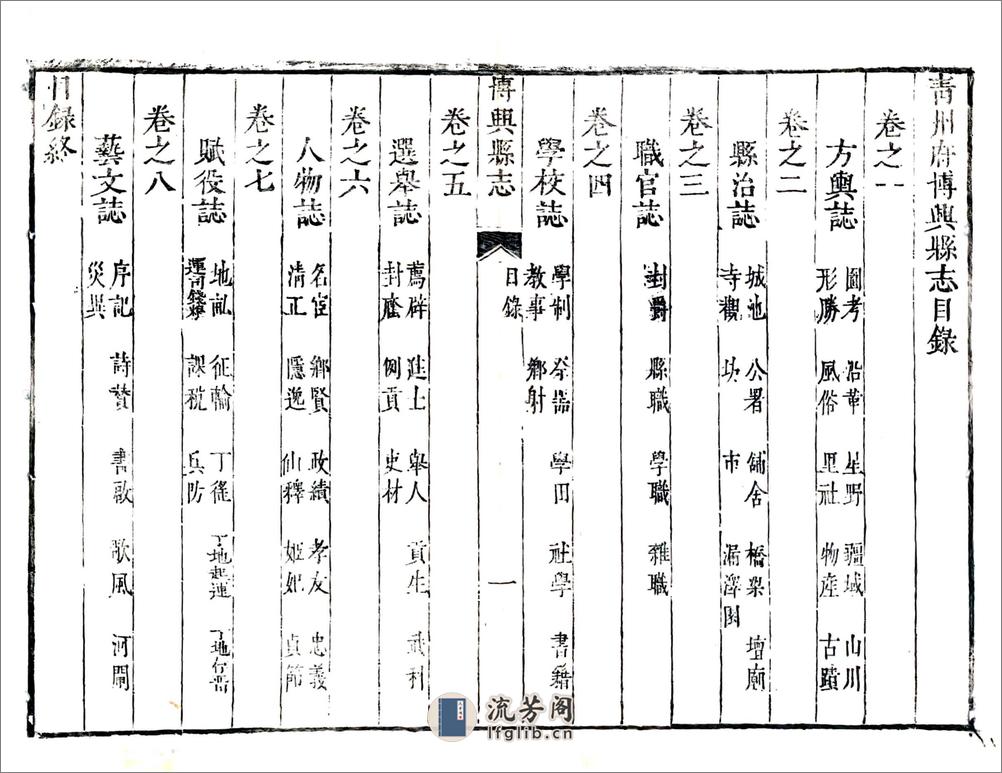 青州府博興縣志目錄
卷之一
方輿誌
圖考 沿革 星野 疆域 山川
形勝 風俗 里社 物產 古蹟
卷之二
縣治誌
城池 公署 鋪舍 橋梁 壇廟
寺觀 坊 市 漏澤園
卷之三
職官誌
封爵 縣職 學職 雜職
卷之四
學校誌
學制 祭器 學田 社學 書籍
教事 鄉射
博興縣志
目錄
一
卷之五
選舉誌
薦辟 進士 舉人 貢生 武科
封廕 例貢 吏材
卷之六
人物誌
名宦 鄉賢 政績 孝友 忠義
清正 隱逸 仙釋 姬妃 貞節
卷之七
賦役誌
地畝 征輸 丁徭 丁地起運 丁地存畱
課稅 兵防
卷之八
藝文誌
序記 詩贊 書啟 歌風 河閘
災異
目錄終
流芳阁
lfglib.cn